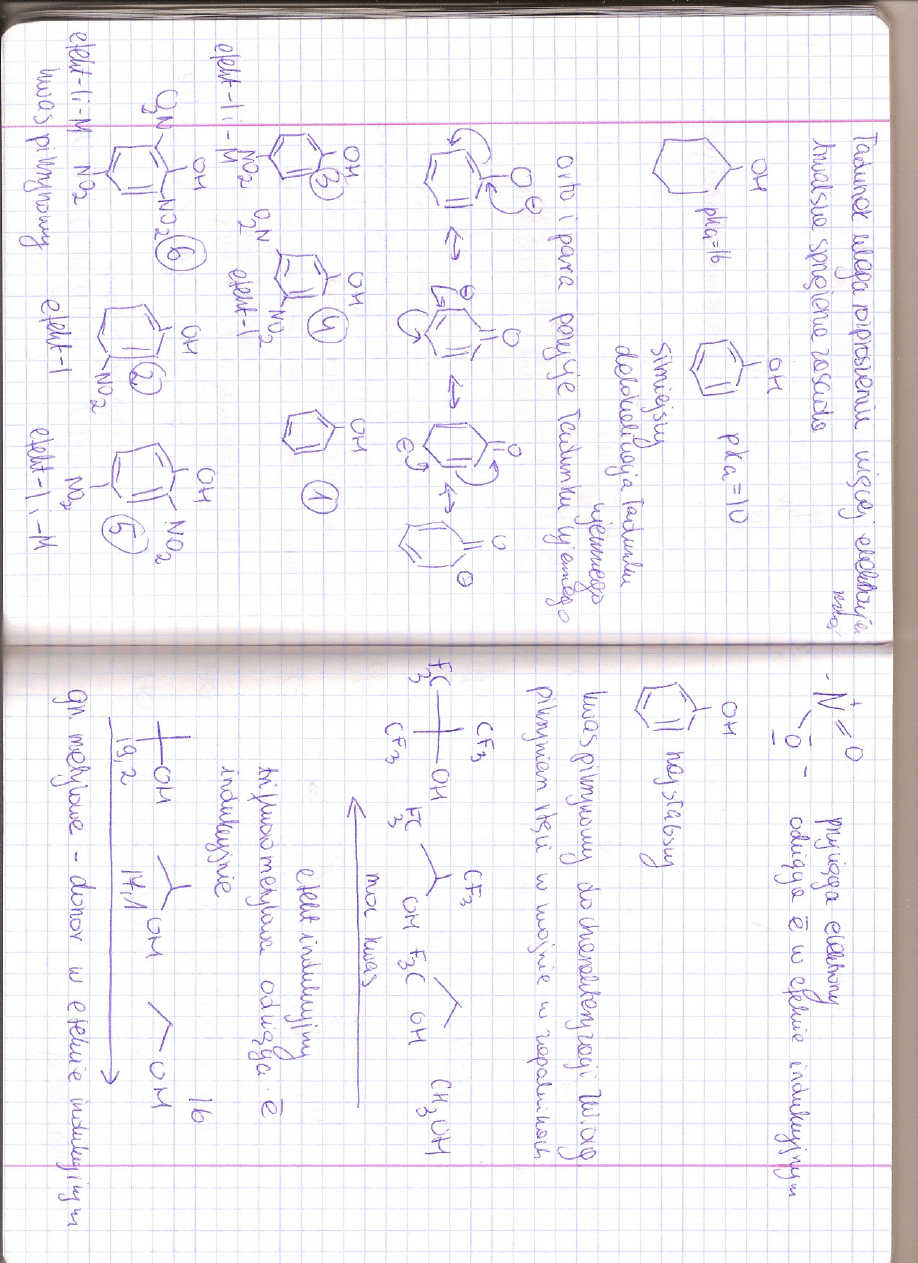 ładunek ulega rozproszeniu więcej elektronów
kwalsie sprzężone zasada
OH
pka=16
OH
pka=10
silniejszy
delokalizacja ładunku
ujemnego
orto i para pozycje ładunku ujemnego
O ⊖
↔
⊖
O
↔
O
⊖
↔
O
⊖
OH
NO2
3
efekt -I i -M
OH
O2N
NO2
4
efekt -I
OH
1
OH
O2N
NO2
NO2
6
efekt -I i -M
kwas pikrynowy
OH
NO2
2
efekt -I
OH
NO2
NO2
5
efekt -I i -M
- N+ = O
O -
przyciąga elektrony
odciąga ē w efekcie indukcyjnym
OH
najsłabszy
kwas pikrynowy do charakteryzacji zw. org
pikrynian w wojnie w zapalnikach
F3C
CF3
CF3
OH
F3C
CF3
OH
F3C
OH
CH3OH
moc kwas
efekt indukcyjny
trifluorometylowa odciąga ē
indukcyjnie
OH
19,2
OH
17,1
OH
16
gr. metylowe - donor w efekcie indukcyjnym